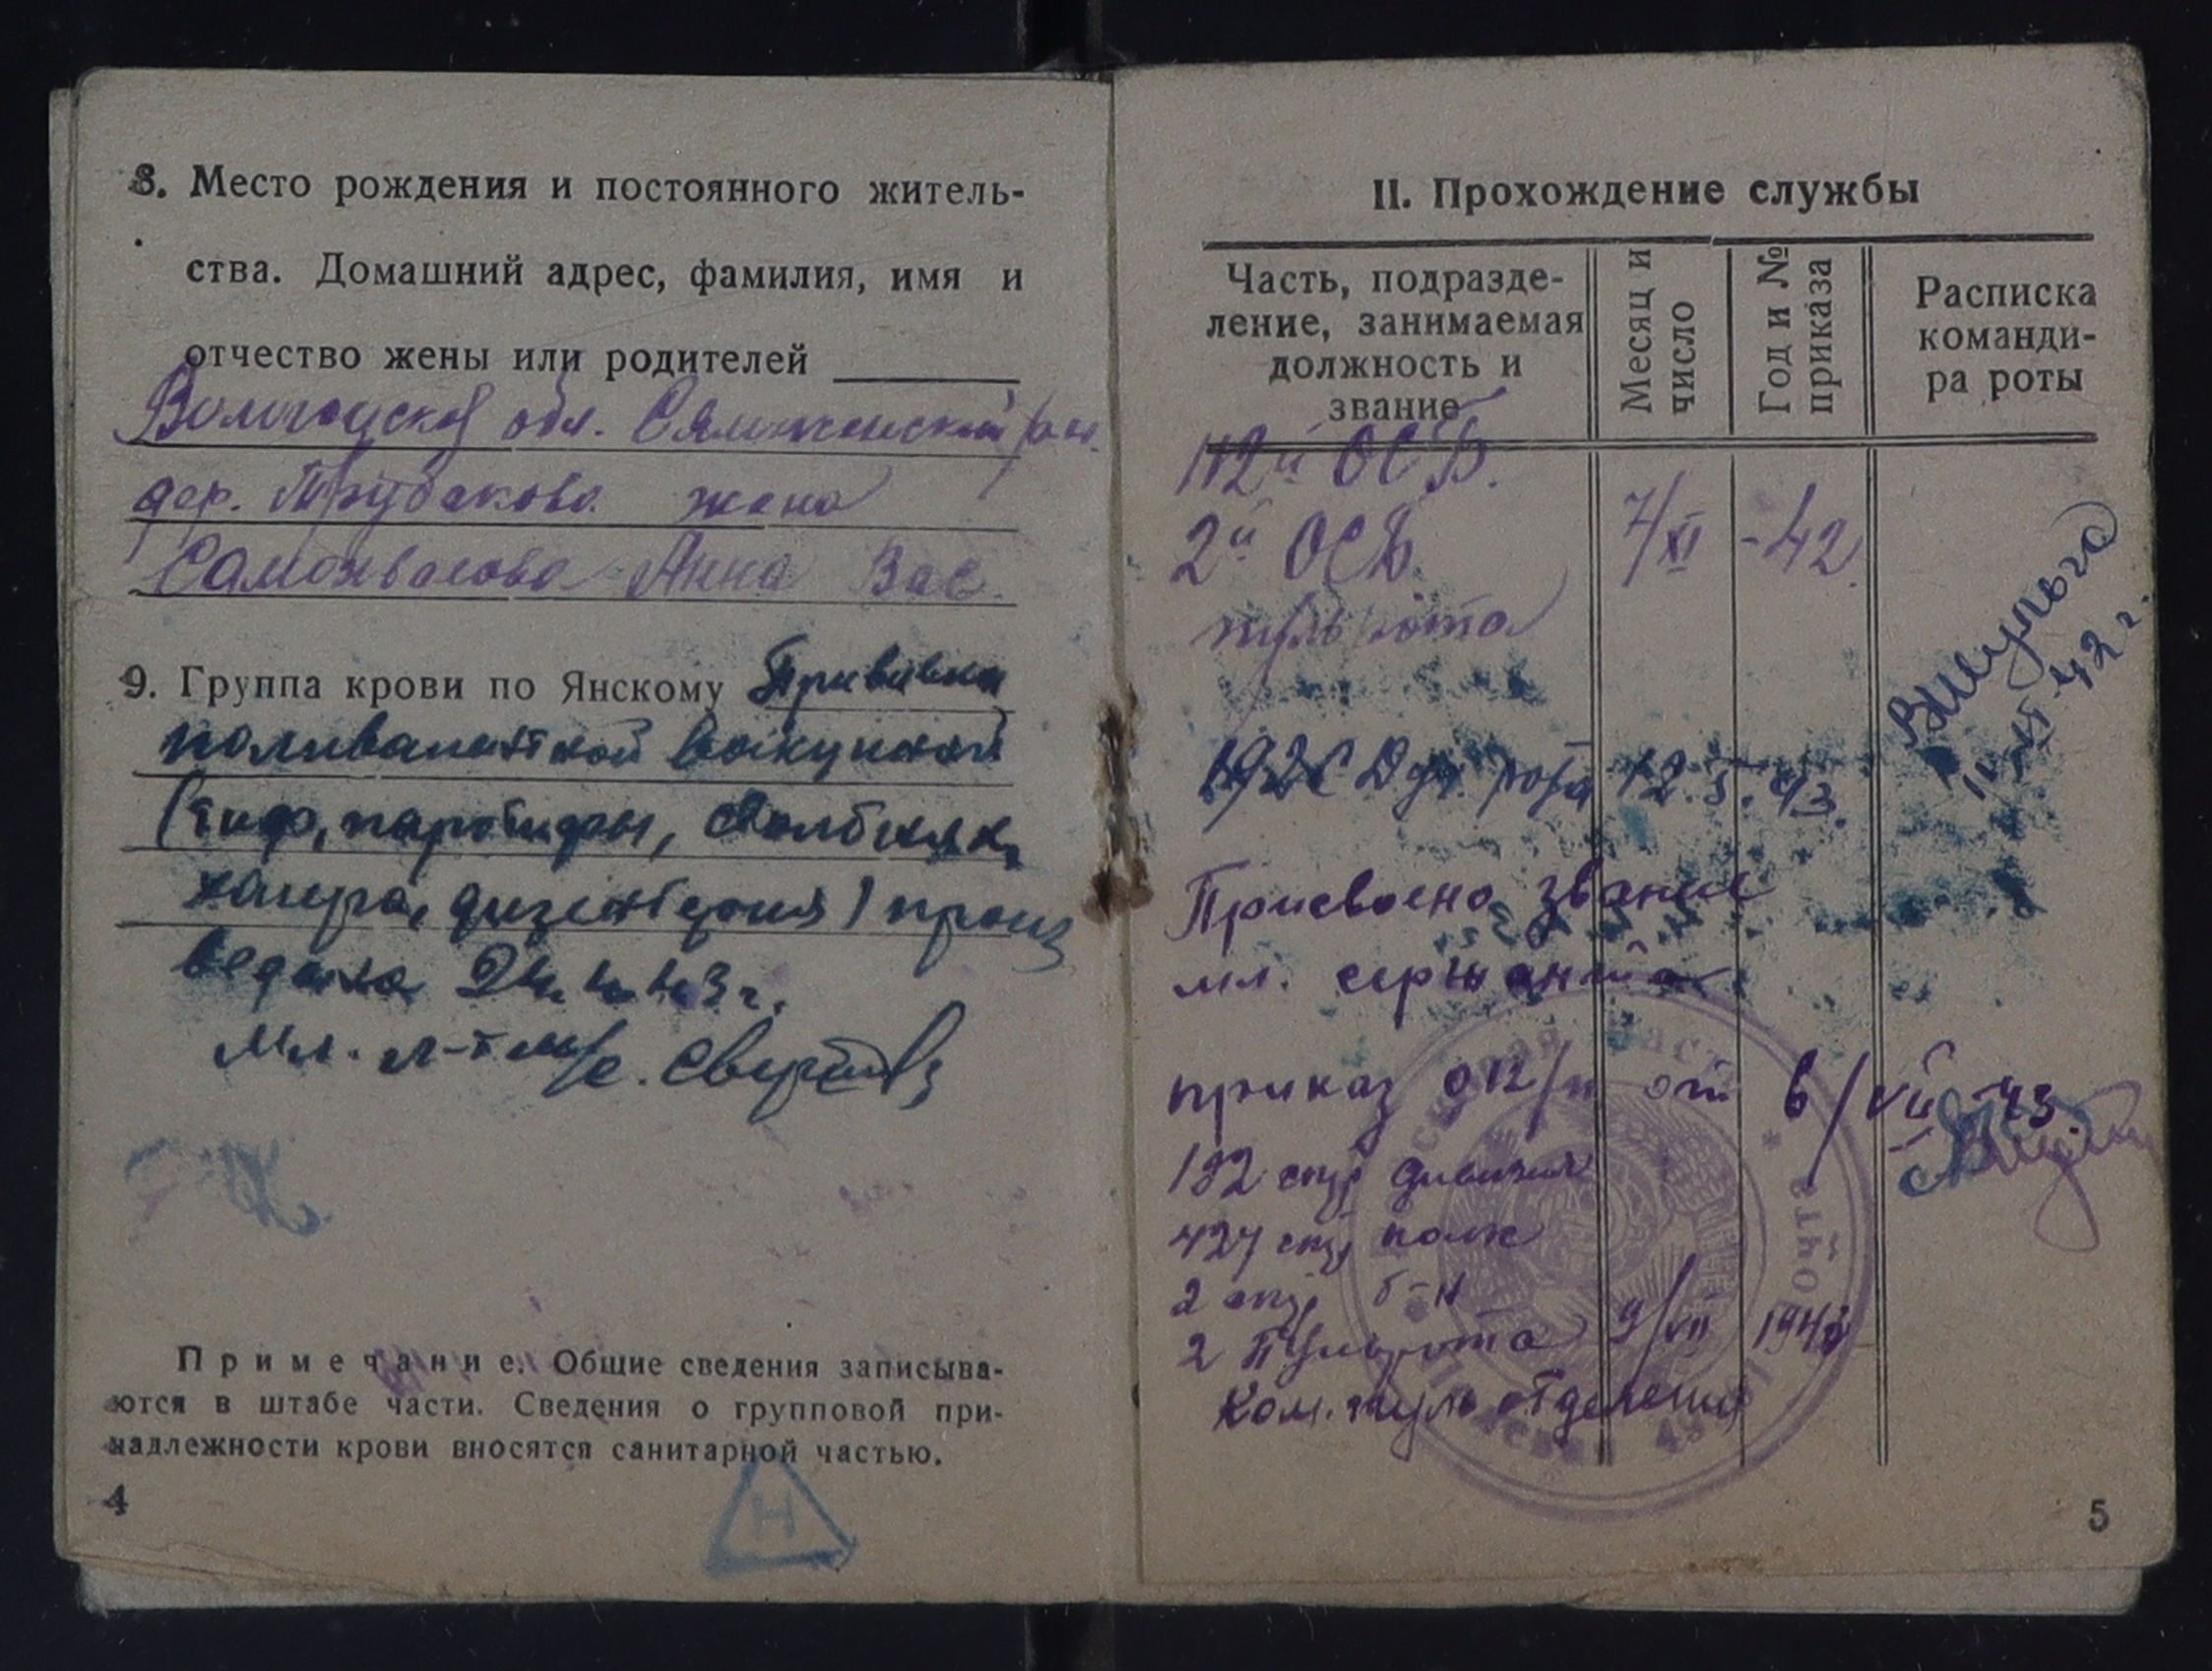 8. Место рождения и постоянного житель-
ства. Домашний адрес, фамилия, имя и
отчество жены или родителей
Вологодской обл. Сямженский рн.
дер. Трубакова жена
Самохвалова Анна Вас.
9. Группа крови по Янскому Прививка
поливалентной вакциной
(тиф, паратифы, столбняк,
холера, дизентерия) произ
ведена 24.4.43 г.
Мл. л-т м/с.
Примечание. Общие сведения записыва-
ются в штабе части. Сведения о групповой при-
надлежности крови вносятся санитарной частью.
Н
4
II. Прохождение службы
Часть, подразде-
ление, занимаемая
должность и
звание
Месяц и
число
Год и №
приказа
Расписка
команди-
ра роты
112й ОСБ.
2й ОСБ. 7/XI -42.
пуль рота
192 СД рота 12.5.43.
42 г.
Присвоено звание
мл. сержанта
приказ от 6/VII-43.
192 стр дивизия
427 стр полк
2 стр б-н
2 Пульрота 9/VII 1943
Ком. пуль отделения
5